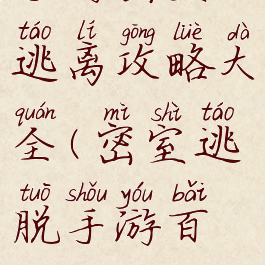 táo lí gōng lüè dà
逃离攻略大
quán mì shì táo
全(密室逃
tuō shǒu yóu bǎi
脱手游百